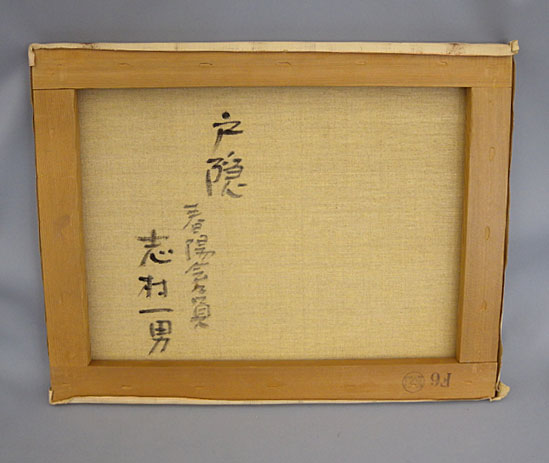 戸隠
春陽会会員
志村一男
F6